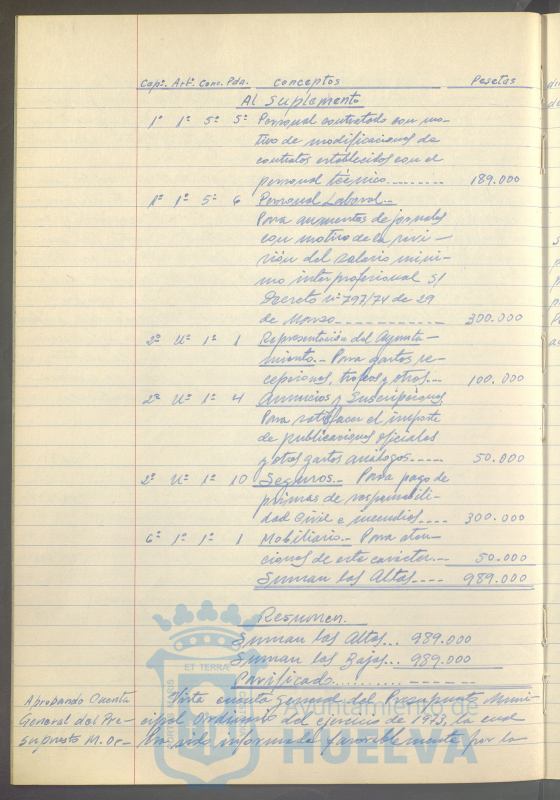 Capº. Artº. Conc. Pda. Conceptos Pesetas
Al Suplemento
1º 1º 5º 5º Personal contratado con mo-
tivo de modificaciones de
contratos establecidos con el
personal técnico........ 189.000
1º 1º 5º 6 Personal Laboral.-
Para aumentos de jornales
con motivo de la revi-
sión del salario mini-
mo interprofesional S/
Decreto nº 797/74 de 29
de Marzo------------ 300.000
2º Uº 1º 1 Representación del Ayunta-
miento.- Para gastos re-
cepciones, trofeos y otros.-- 100.000
2º Uº 1º 4 Anuncios y Suscripciones
Para satisfacer el importe
de publicaciones oficiales
y otros gastos análogos.---- 50.000
2º Uº 1º 10 Seguros.- Para pago de
primas de responsabili-
dad Civil e incendios---- 300.000
6º 1º 1º 1 Mobiliario.- Para aten-
ciones de este carácter.-- 50.000
Suman las Altas---- 989.000
Resumen.
Suman las Altas... 989.000
Suman las Bajas... 989.000
.......... -----
Aprobando Cuenta
General del Pre-
supuesto M. Or-
Vista cuenta general del Presupuesto Muni-
cipal Ordinario del ejercicio de 1973, la cual
ha sido informada favorablemente por la
ET TERRA
Ayuntamiento de
HUELVA